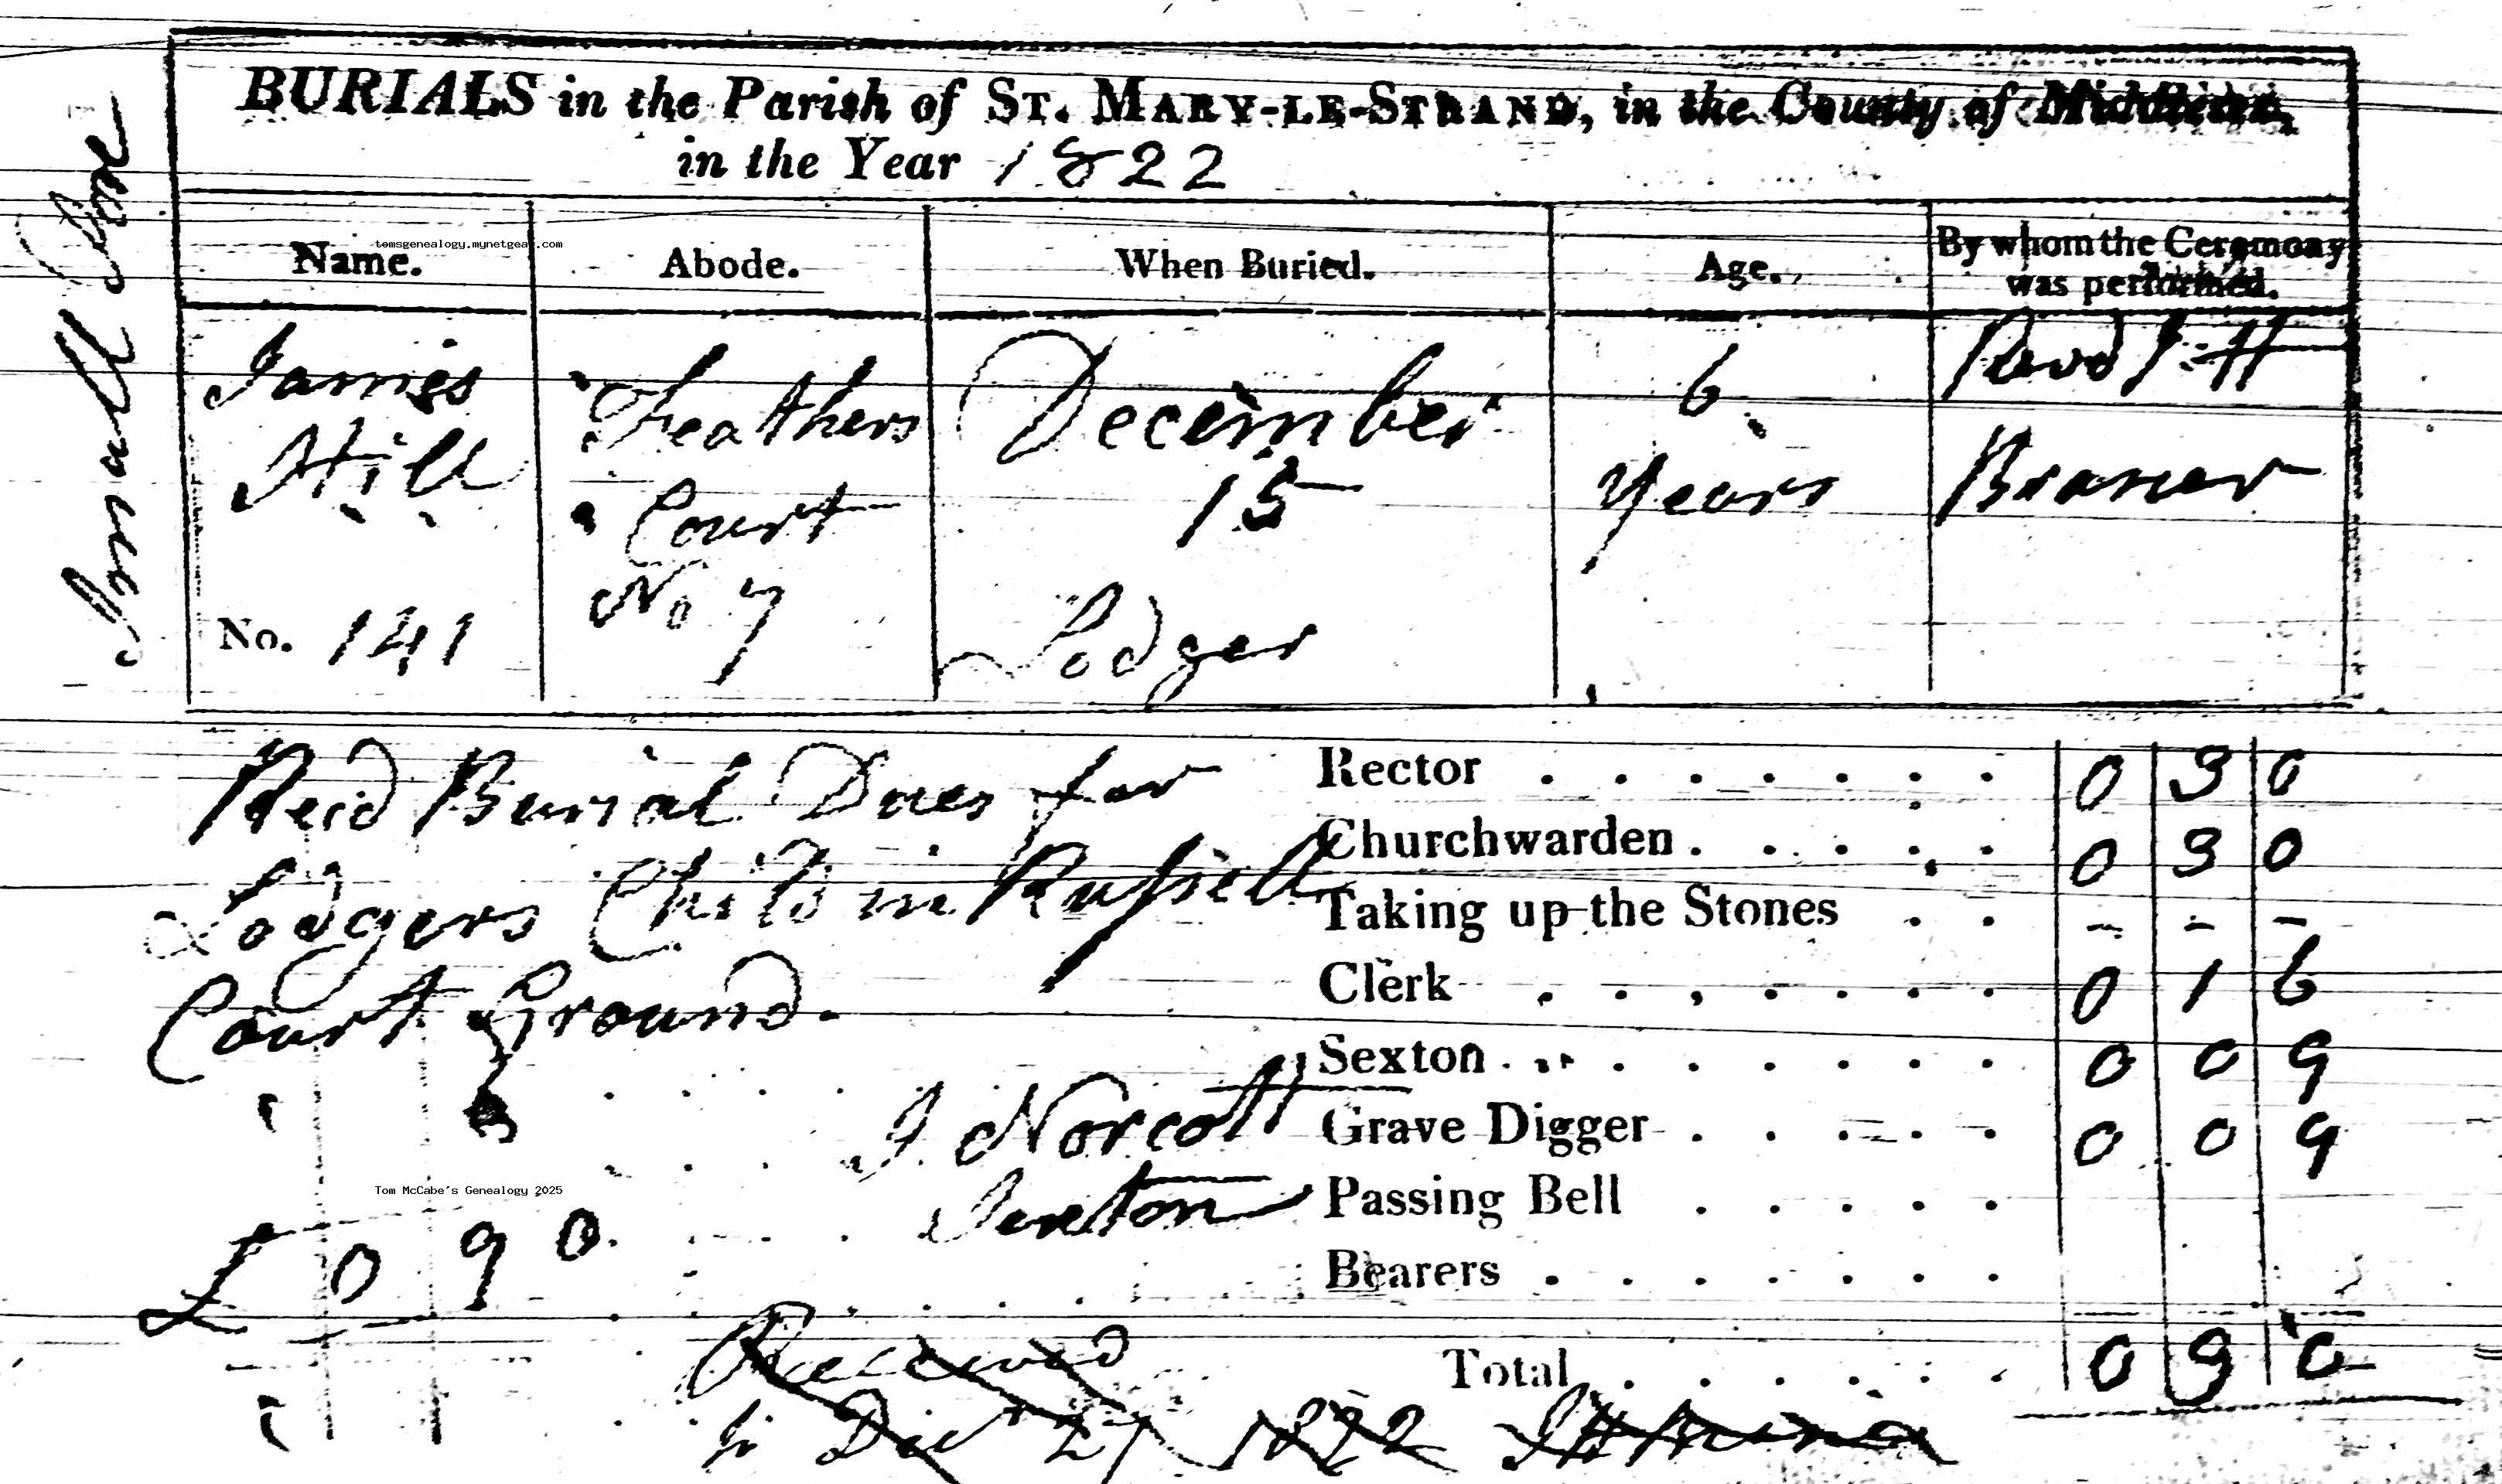 BURIALS in the Parish of ST. MARY-LE-STRAND, in the County of Middlesex,
in the Year 1822
Small Pox
tomsgenealogy.mynetgear.com
Name. Abode. When Buried. Age. By whom the Ceremony was performed.
James Feathers December 6
Hill Court 15 Years
No. 141 No 7 Lodger
Rector . . . . . . . 0 3 0
Churchwarden . . . . . 0 3 0
Taking up the Stones . . - - -
Clerk . . . . . . . 0 1 6
Sexton . . . . . . . 0 0 9
Grave Digger . . . . . 0 0 9
Passing Bell . . . . .
Bearers . . . . . . .
Total . . . . . . 0 9 0
Burial Dues for
Lodgers Child in Russell
Court Ground.
J. Norcott
Sexton
Tom McCabe's Genealogy 2025
£ 0 9 0
Received
to Decr 27 1822